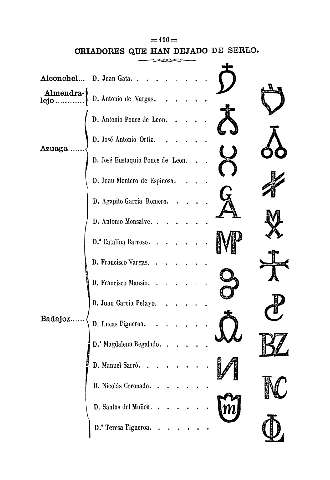 =120=
CRIADORES QUE HAN DEJADO DE SERLO.
Alconchel... D. Juan Gata. . . . . . . . .
Almendra-
lejo ........... D. Antonio de Vargas. . . . . .
D. Antonio Ponce de Leon. . . . .
D. José Antonio Ortiz. . . . . .
Azuaga ......
D. José Eustaquio Ponce de Leon. . .
D. Juan Montero de Espinosa. . . .
D. Agapito García Romero. . . . .
D. Antonio Monsalve. . . . . . .
D.ª Catalina Barroso. . . . . . .
D. Francisco Vargas. . . . . . .
D. Francisco
D. Juan García Pelayo. . . . . .
Badajoz......
D. Lucas Figueroa. . . . . . .
D.ª Magdalena Regalado. . . . . .
D. Manuel Sarró. . . . . . . .
D. Nicolás Coronado. . . . . . .
D. Santos del Muñoz. . . . . . .
D.ª Teresa Figueroa. . . . . . .
GA
MP
BZ
NC
m